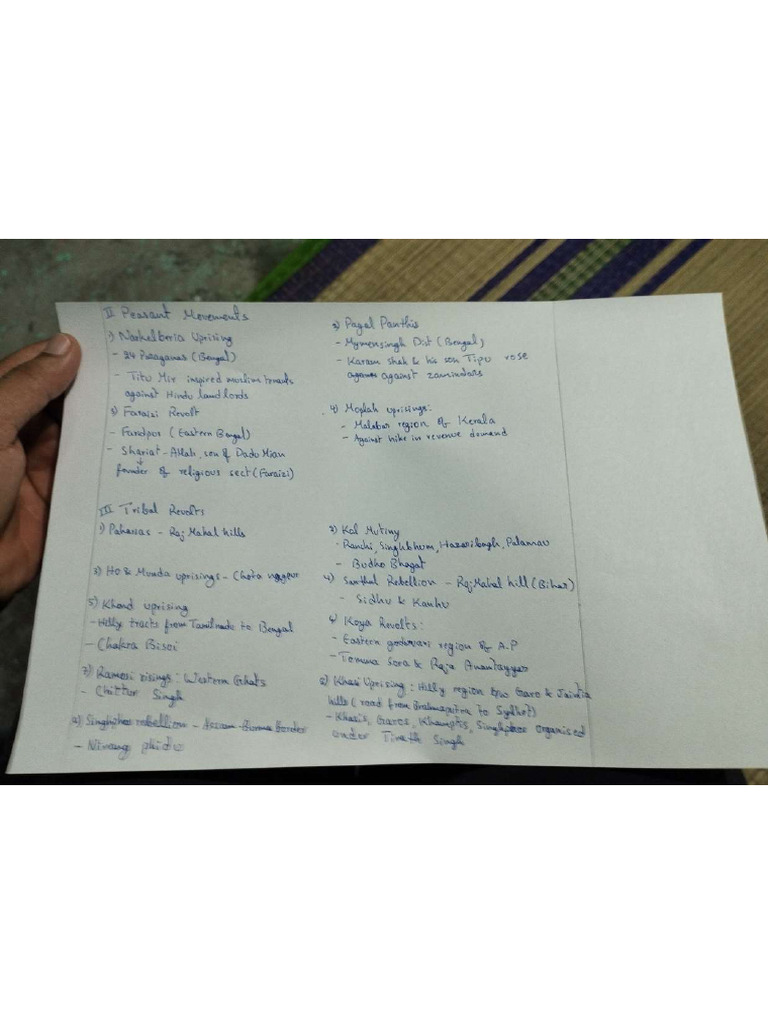 II Peasant Movements
1) Narkelberia Uprising
- 24 Paraganas (Bengal)
- Titu Mir inspired muslim tenants
against Hindu landlords
2) Pagal Panthis
- Mymensingh Dist (Bengal)
- Karam shah & his son Tipu rose
against zamindars
3) Faraizi Revolt
- Faridpur (Eastern Bengal)
- Shariat-Allah, son of Dadu Mian
founder of religious sect (Faraizi)
4) Moplah uprisings:
- Malabar region of Kerala
- Against hike in revenue demand
III Tribal Revolts
1) Paharias - Raj Mahal hills
2) Kol Mutiny
- Ranchi, Singhbhum, Hazaribagh, Palamau
- Budho Bhagat
3) HO & Munda uprisings - Chota
4) Santhal Rebellion - Raj Mahal hill (Bihar)
- Sidhu & Kanhu
5) Khond uprising
- Hilly tracts from Tamilnadu to Bengal
- Chakra Bisoi
6) Koya Revolts:
- Eastern godavari region of A.P
- Tomma Sora & Raja Anantayyar
7) Ramosi risings: Western Ghats
- Chittur Singh
8) Khasi Uprising: Hilly region b/w Garo & Jaintia
hills (road from Brahmaputra to Sylhet)
- Khasis, Garos, Khamptis, Singhphos organised
under Tirath Singh
9) rebellion - Assam-Burma Border
- Nirang phidu